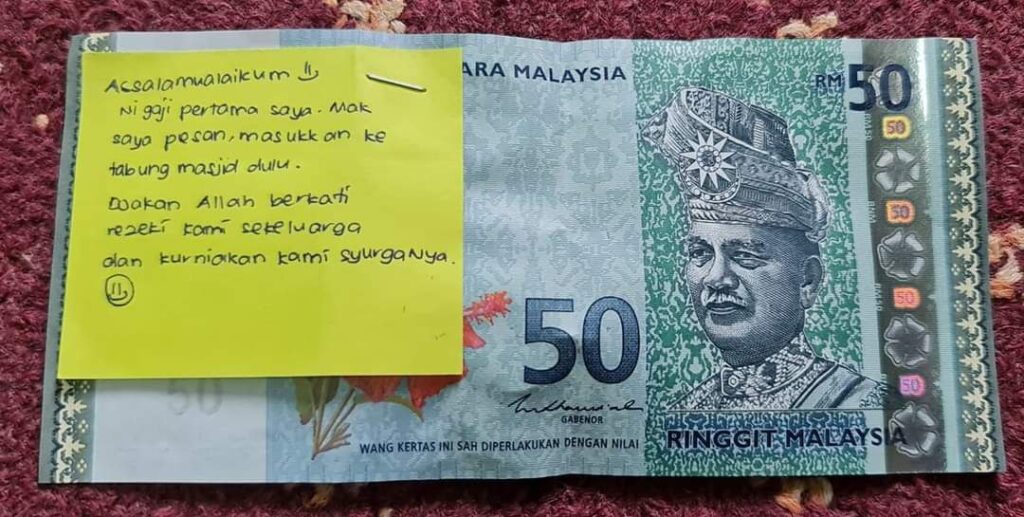 Assalamualaikum
Ni gaji pertama saya. Mak
saya pesan, masukkan ke
tabung masjid dulu.
Doakan Allah berkati
rezeki kami sekeluarga
dan kurniakan kami syurgaNya.
ARA MALAYSIA
RM50
50
50
50
50
50
50
GABENOR
WANG KERTAS INI SAH DIPERLAKUKAN DENGAN NILAI
RINGGIT MALAYSIA